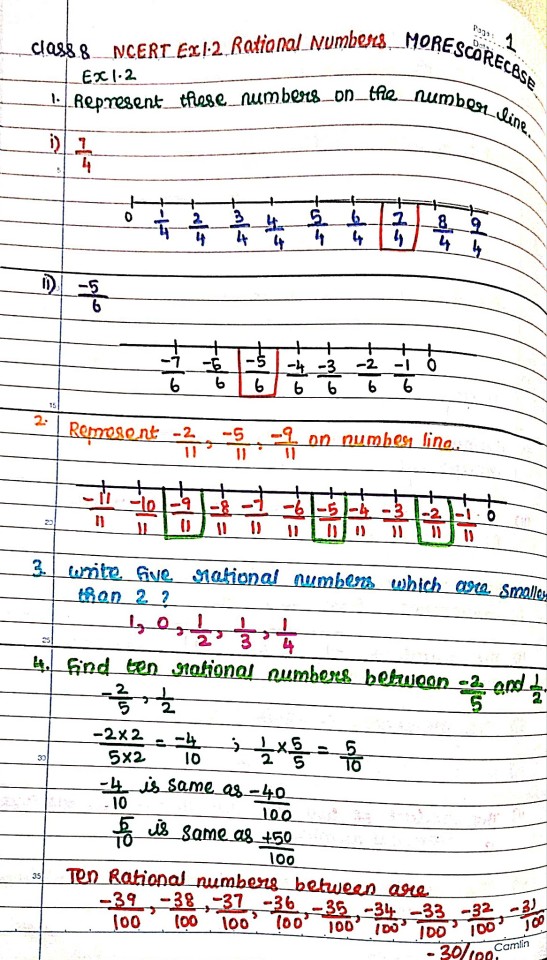 Page: 1
class 8 NCERT Ex 1.2 Rational Numbers MORESCORECBSE
Ex 1.2
1. Represent these numbers on the number line.
i) 7/4
0 1/4 2/4 3/4 4/4 5/4 6/4 7/4 8/4 9/4
ii) -5/6
-7/6 -6/6 -5/6 -4/6 -3/6 -2/6 -1/6 0
15
2. Represent -2/11, -5/11, -9/11 on number line.
-11/11 -10/11 -9/11 -8/11 -7/11 -6/11 -5/11 -4/11 -3/11 -2/11 -1/11 0
3. write five rational numbers which are smaller
than 2 ?
1, 0, 1/2, 1/3, 1/4
25
4. Find ten rational numbers between -2/5 and 1/2.
-2/5, 1/2
-2×2/5×2 = -4/10 ; 1/2 × 5/5 = 5/10
30
-4/10 is same as -40/100
5/10 is same as +50/100
35
Ten Rational numbers between are
-39/100, -38/100, -37/100, -36/100, -35/100, -34/100, -33/100, -32/100, -31/100
-30/100.
Camlin